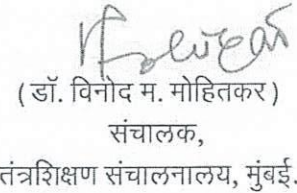 (डॉ. विनोद म. मोहितकर)
संचालक,
तंत्रशिक्षण संचालनालय, मुंबई.